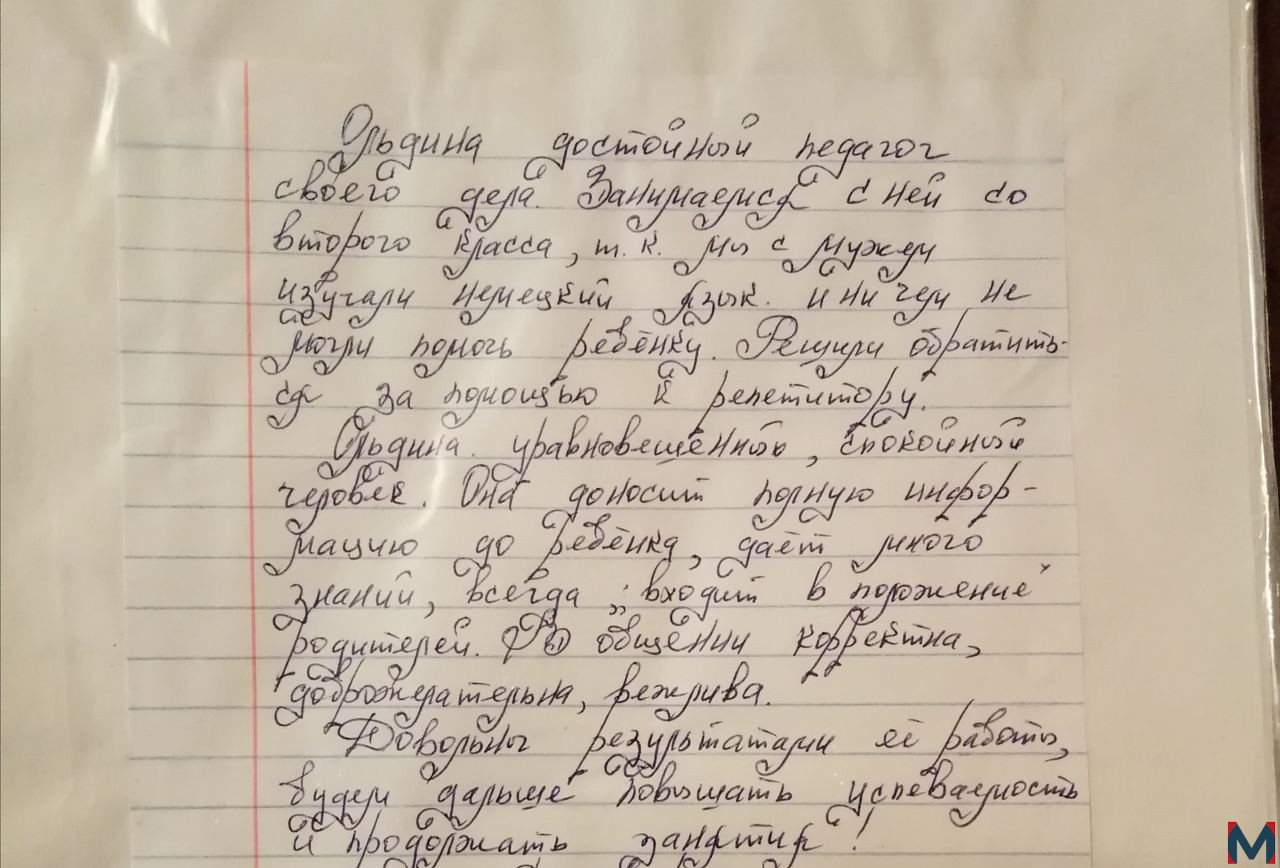 Ольдина достойный педагог
своего дела. Занимаемся с ней со
второго класса, т.к. мы с мужем
изучали немецкий язык. и ничем не
могли помочь ребёнку. Решили обратить-
ся за помощью к репетитору.
Ольдина. уравновешенный, спокойный
человек. Она доносит полную инфор-
мацию до ребёнка, даёт много
знаний, всегда „входит в положение"
родителей. В общении корректна,
доброжелательна, вежлива.
Довольны результатами её работы,
будем дальше повышать успеваемость
и продолжать занятия!
M